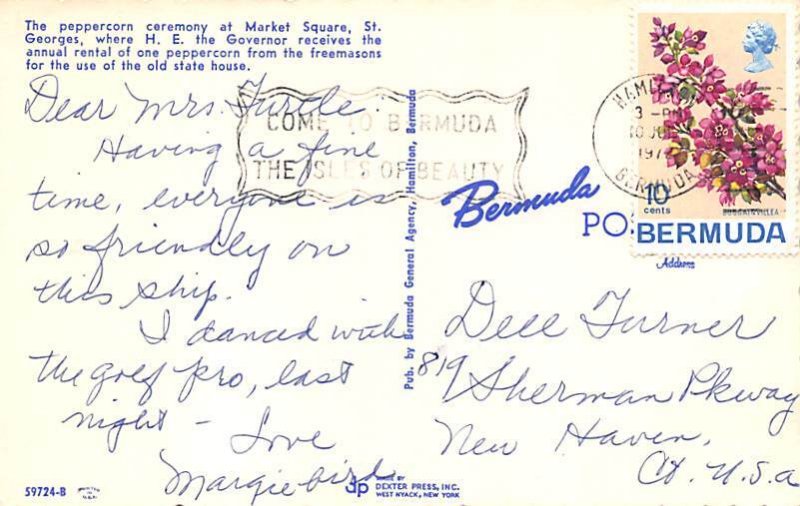 The peppercorn ceremony at Market Square, St.
Georges, where H. E. the Governor receives the
annual rental of one peppercorn from the freemasons
for the use of the old state house.
Dear Mrs. Turtle:
Having a fine
time, everyone is
so friendly on
this ship.
I danced with
the golf pro, last
night - Love
Margiebird
59724-B
COME TO BERMUDA
THE ISLES OF BEAUTY
Pub. by Bermuda General Agency, Hamilton, Bermuda
MADE BY
DEXTER PRESS, INC.
WEST NYACK, NEW YORK
HAMILTON
3 - PM
BERMUDA
10
cents
BOUGAINVILLEA
BERMUDA
Bermuda
PO
Address
Dell Turner
819 Sherman Pkway
New Haven,
Ct. U.S.a